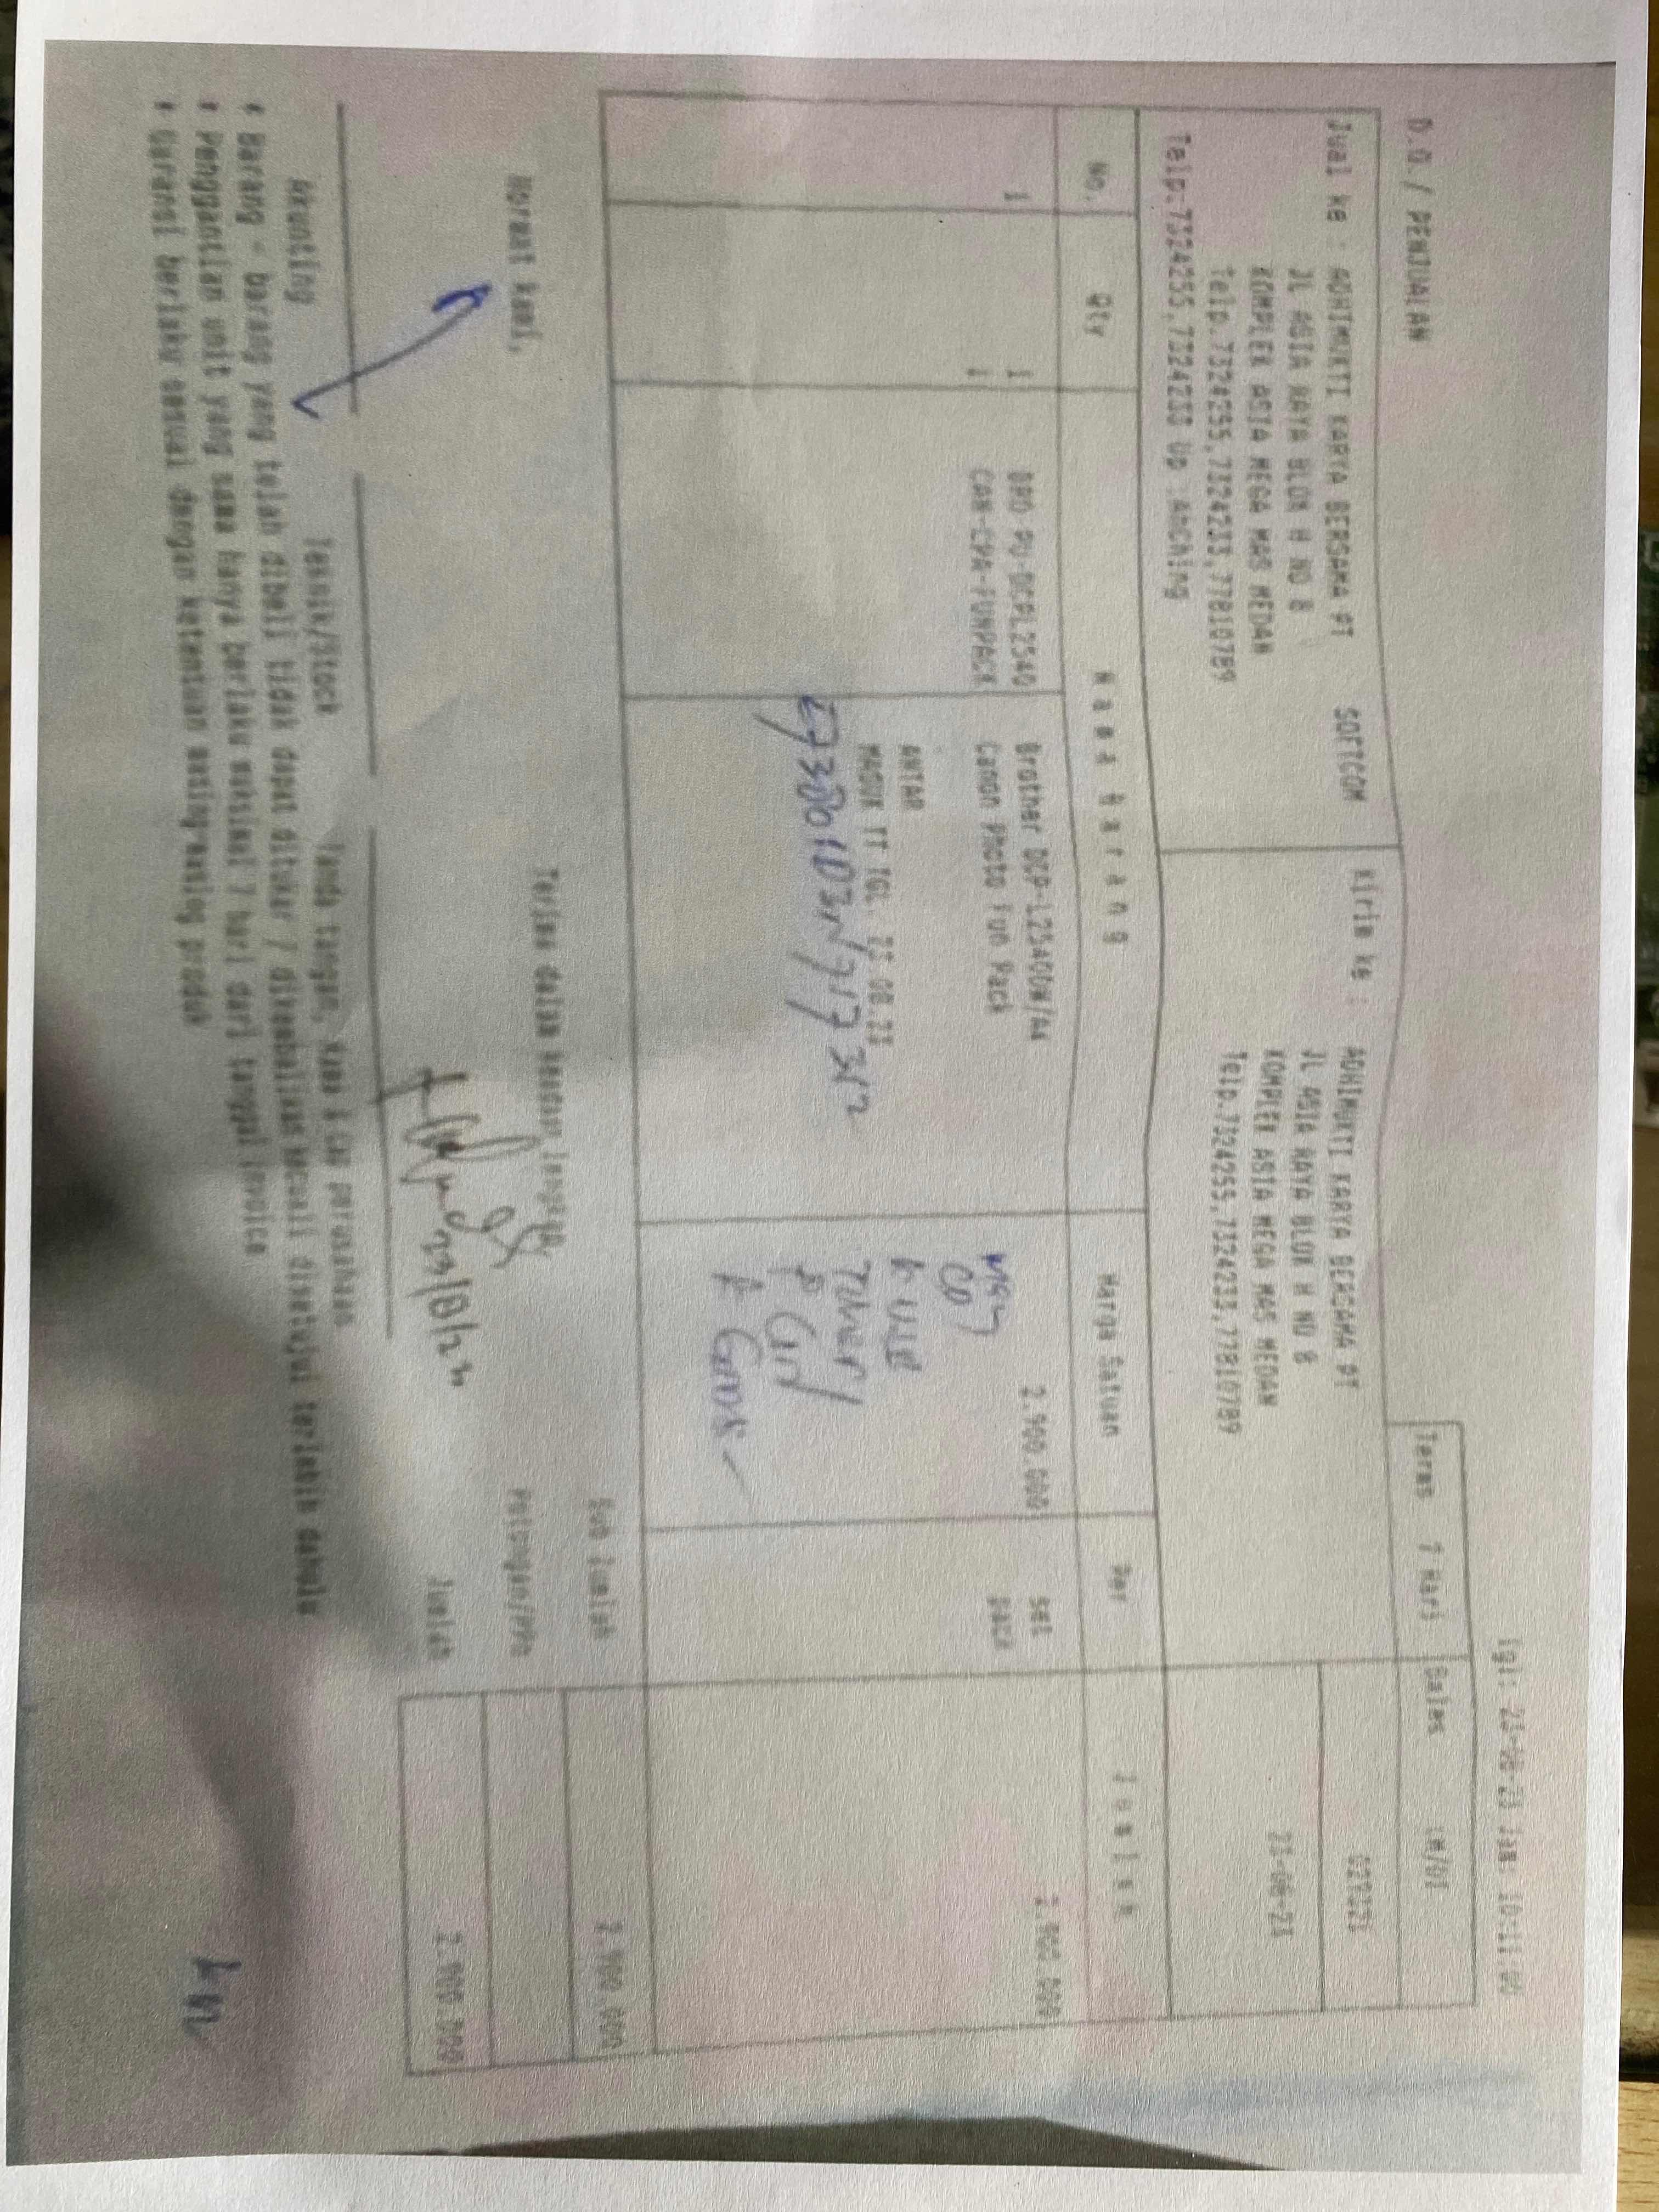 Tgl: 23-08-23 Jam: 10:11:00
D.O./ PENJUALAN
Terms 7 Hari Sales
Jual ke : ADHIMUKTI KARYA BERSAMA PT SOFTCOM
JL ASIA RAYA BLOK H NO 8
KOMPLEK ASIA MEGA MAS MEDAN
Telp.7324255,7324233,77810789
Telp:7324255,7324233 Up :AhChing
Kirim ke : ADHIMUKTI KARYA BERSAMA PT
JL ASIA RAYA BLOK H NO 8
KOMPLEK ASIA MEGA MAS MEDAN
Telp.7324255,7324233,77810789
23-08-23
No. Qty Nama Barang Harga Satuan Per Jumlah
1 1 BRO-PU-DCPL2540 Brother DCP-L2540DW/A4 2.900.000 set 2.900.000
1 CAN-CPA-FUNPACK Canon Photo Fun Pack pack
ANTAR
MASUK TT TGL. 23.08.23
CD
Toner
Sub Jumlah 2.900.000
Potongan/PPn
Jumlah 2.900.000
Hormat kami,
Terima dalam keadaan lengkap,
23/8/23
Akunting Teknik/Stock Tanda tangan, nama & cap perusahaan
* Barang - barang yang telah dibeli tidak dapat ditukar / dikembalikan kecuali disetujui terlebih dahulu
* Penggantian unit yang sama hanya berlaku maksimal 7 hari dari tanggal invoice
* Garansi berlaku sesuai dengan ketentuan masing-masing produk